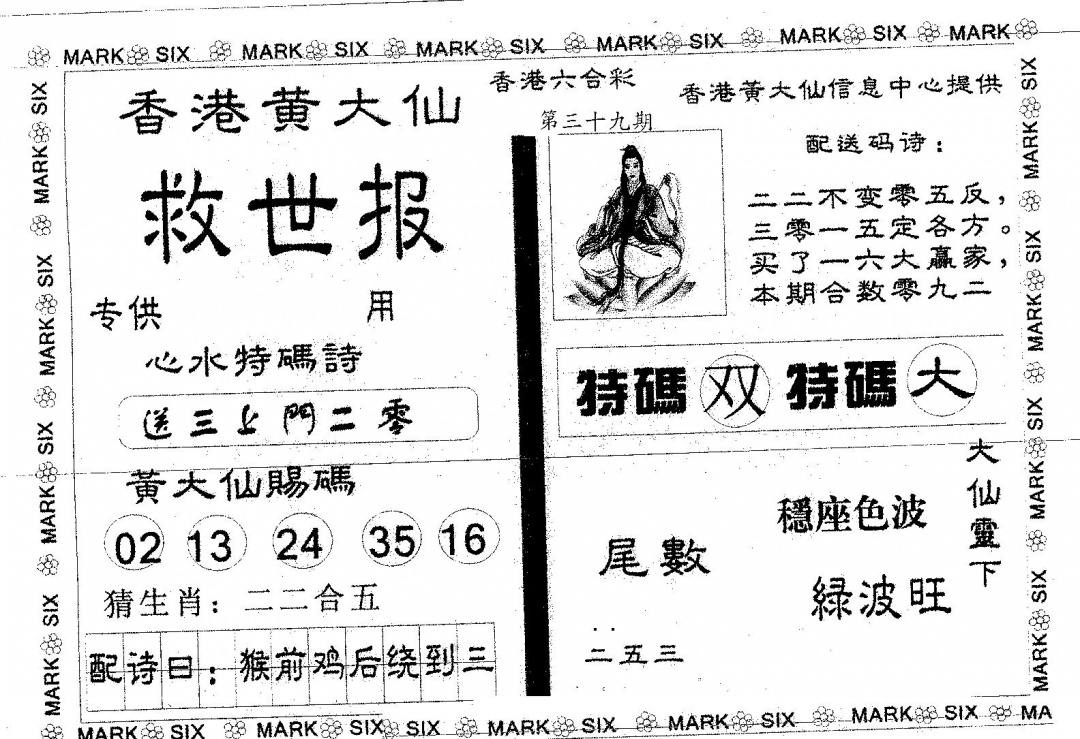 MARK SIX MARK SIX MARK SIX MARK SIX MARK SIX MARK
香港黄大仙
救世报
专供 用
心水特碼詩
送三上門二零
黃大仙賜碼
02 13 24 35 16
猜生肖：二二合五
配诗曰：猴前鸡后绕到三
香港六合彩
第三十九期
香港黄大仙信息中心提供
配送码诗：
二二不变零五反，
三零一五定各方。
买了一六大赢家，
本期合数零九二
特碼 双 特碼 大
大仙靈下
穩座色波
緑波旺
尾數
二五三
MARK SIX MARK SIX MARK SIX MARK SIX
MARK SIX MARK SIX MARK SIX MARK SIX
MARK SIX MARK SIX SIX MARK SIX MARK SIX MARK SIX MA